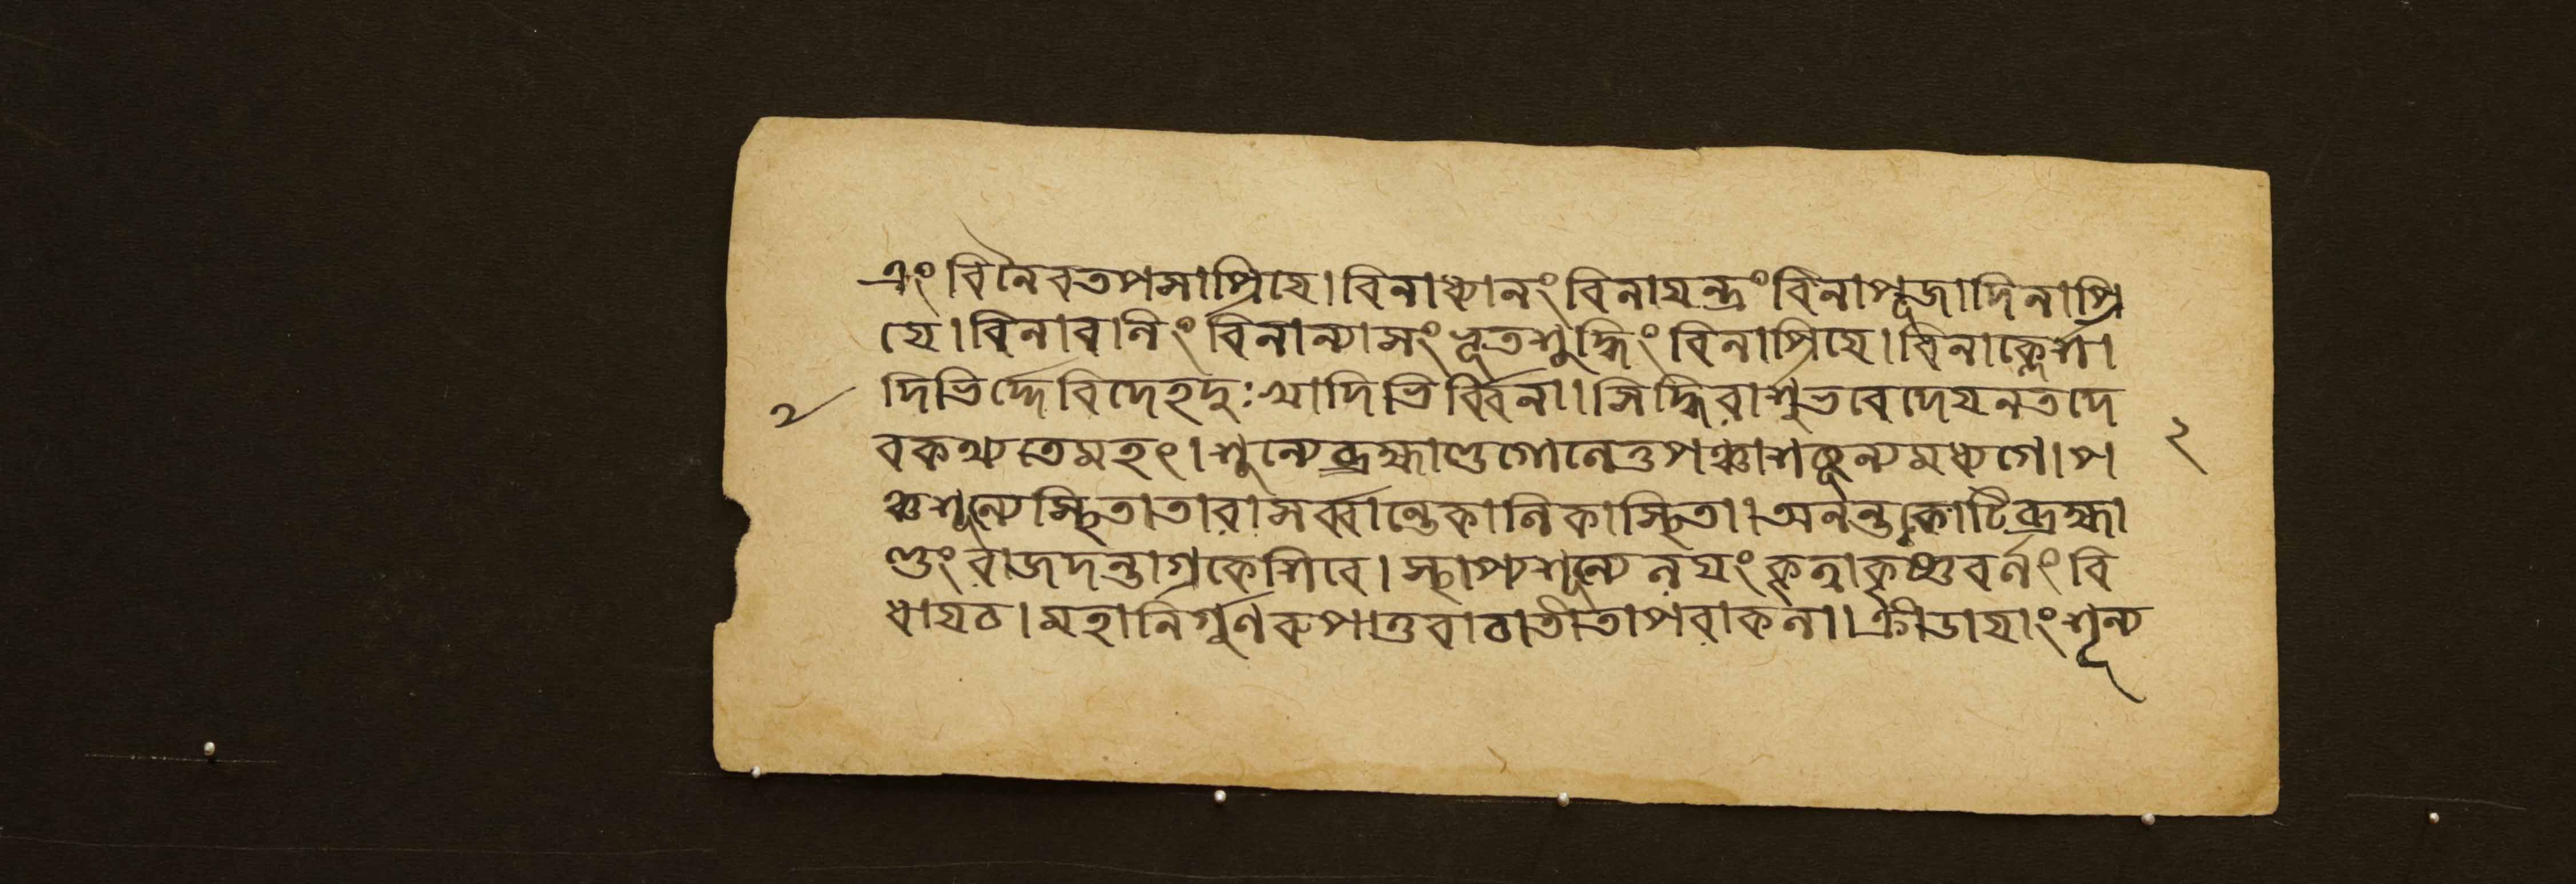 এং বিনৈবতপসাপ্রিয়ে। বিনাধ্যানং বিনাযন্ত্রং বিনাপূজাদিনাপ্রি
য়ে। বিনাবলিং বিনান্যাসং ভূতশুদ্ধিং বিনাপ্রিয়ে। বিনাক্লেশা
দিভির্দ্দেবিদেহদুঃখাদিভির্বিনা। সিদ্ধিরাশুভবেদেযনতদে
২ ২
বকথ্যতেমহৎ। শুন্যেব্রহ্মাণ্ডগোলেতুপঞ্চাশচ্ছূন্যমধ্যগে। প
ঞ্চশূন্যেস্থিতাতারাসর্ব্বান্তেকালিকাস্থিতা। অনন্তকোটিব্রহ্মা
ণ্ডং রাজদন্তাগ্রকেশিবে। স্থাপ্যশূন্যেলয়ং কৃত্বাকৃষ্ণবর্ণং বি
ধায়চ। মহানির্গুণরুপাতুবাচাতীতাপরাকলা। ক্রীডায়াং শূন্য